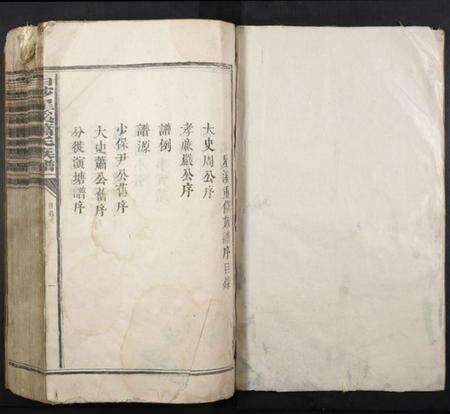 溪重修族譜序目錄
太史周公序
孝廉嚴公序
譜例
譜源
少保尹公舊序
太史蕭公舊序
分徙演塘譜序